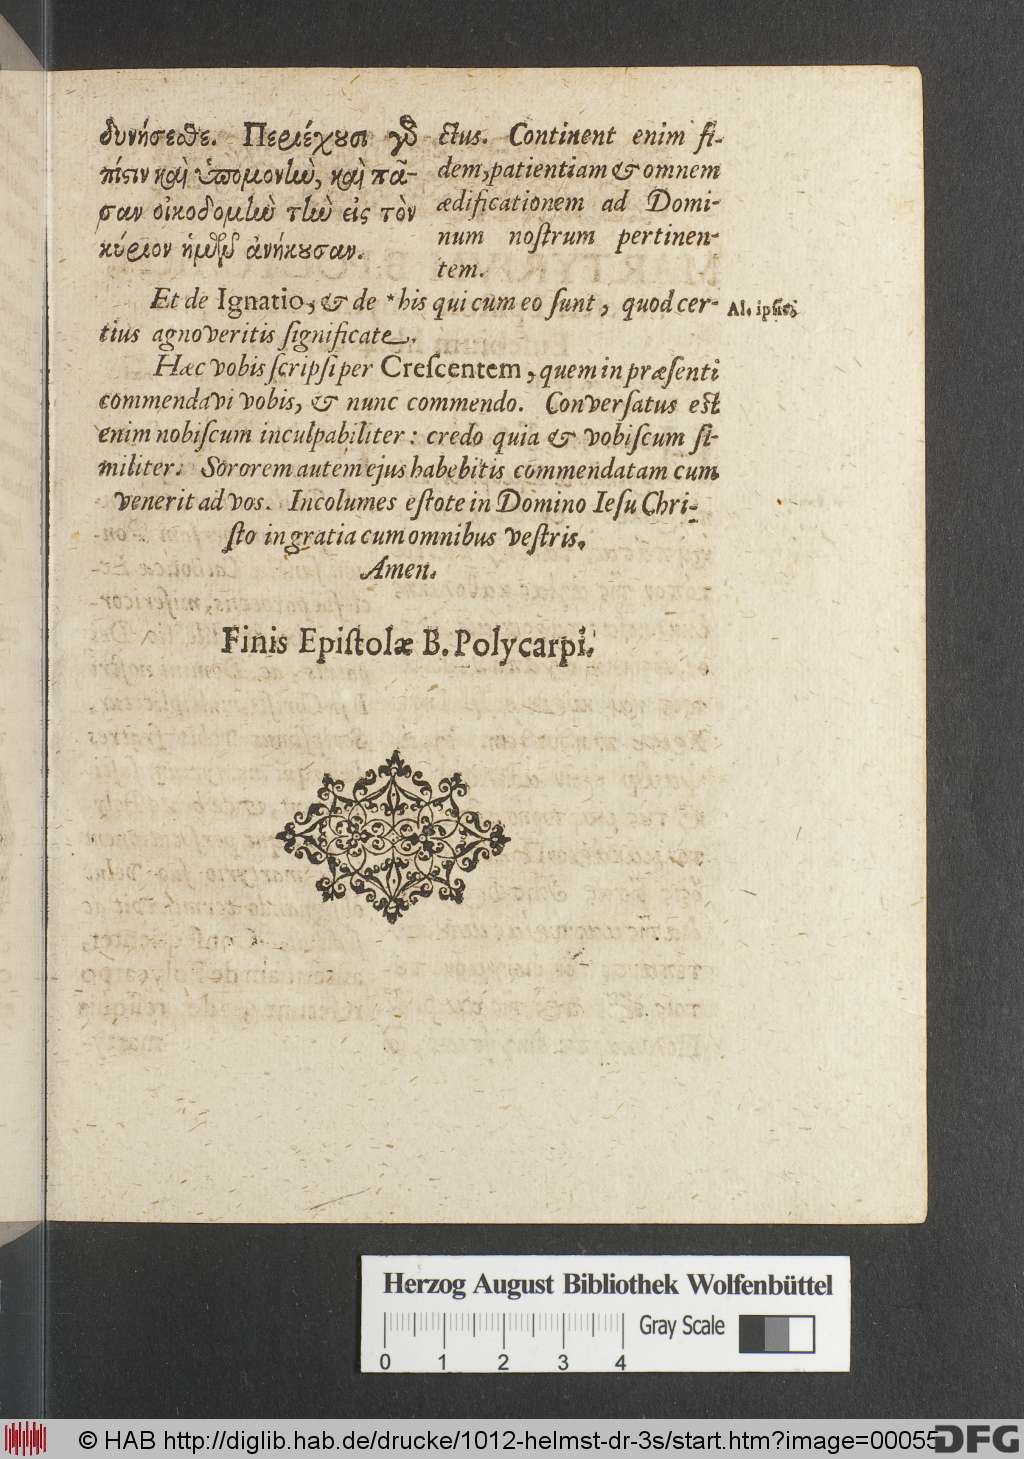 δυνήσεσθε. Περιέχουσι γὰρ
πίστιν καὶ ὑπομονὴν, καὶ πᾶ-
σαν οἰκοδομὴν τὴν εἰς τὸν
κύριον ἡμῶν ἀνήκουσαν.
ctus. Continent enim fi-
dem, patientiam & omnem
ædificationem ad Domi-
num noſtrum pertinen-
tem.
Et de Ignatio, & de *his qui cum eo ſunt, quod cer-
tius agnoveritis ſignificate.
Al. ipſius
Hæc vobis ſcripſi per Creſcentem, quem in præſenti
commendavi vobis, & nunc commendo. Converſatus eſt
enim nobiſcum inculpabiliter: credo quia & vobiſcum ſi-
militer. Sororem autem ejus habebitis commendatam cum
venerit ad vos. Incolumes eſtote in Domino Ieſu Chri-
ſto in gratia cum omnibus veſtris.
Amen.
Finis Epiſtolæ B. Polycarpi.
Herzog August Bibliothek Wolfenbüttel
Gray Scale
0 1 2 3 4
© HAB http://diglib.hab.de/drucke/1012-helmst-dr-3s/start.htm?image=00055
DFG